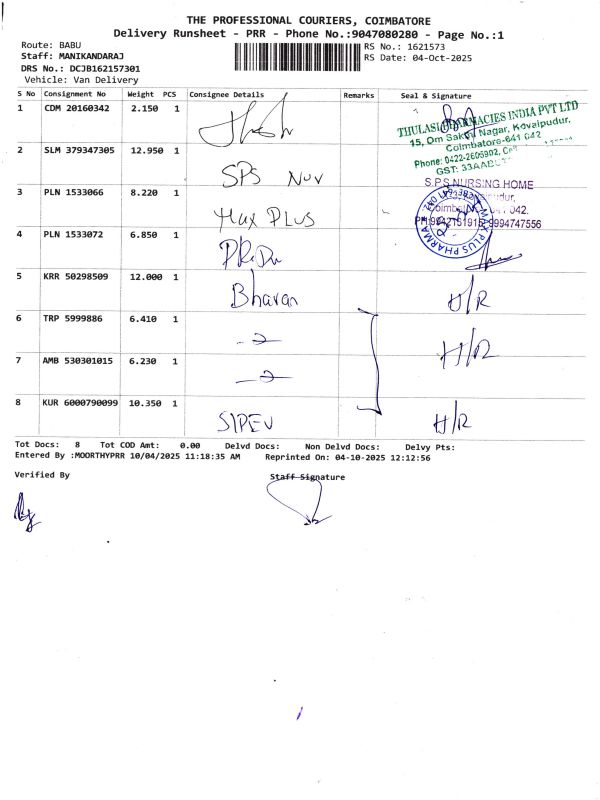 THE PROFESSIONAL COURIERS, COIMBATORE
Delivery Runsheet - PRR - Phone No.:9047080280 - Page No.:1
Route: BABU
Staff: MANIKANDARAJ
DRS No.: DCJB162157301
Vehicle: Van Delivery
RS No.: 1621573
RS Date: 04-Oct-2025
S No Consignment No Weight PCS Consignee Details Remarks Seal & Signature
1 CDM 20160342 2.150 1
THULASI PHARMACIES INDIA PVT LTD
15, Om Sakthi Nagar, Kovaipudur,
Coimbatore-641 042
Phone: 0422-2605902,
2 SLM 379347305 12.950 1 SPS Nur
S.P.S NURSING HOME
3 PLN 1533066 8.220 1 Max PLUS
MAX PLUS PHARMA
4 PLN 1533072 6.850 1
5 KRR 50298509 12.000 1 Bharan H/R
6 TRP 5999886 6.410 1 H/R
7 AMB 530301015 6.230 1
8 KUR 6000790099 10.350 1 H/R
Tot Docs: 8 Tot COD Amt: 0.00 Delvd Docs: Non Delvd Docs: Delvy Pts:
Entered By :MOORTHYPRR 10/04/2025 11:18:35 AM Reprinted On: 04-10-2025 12:12:56
Verified By Staff Signature